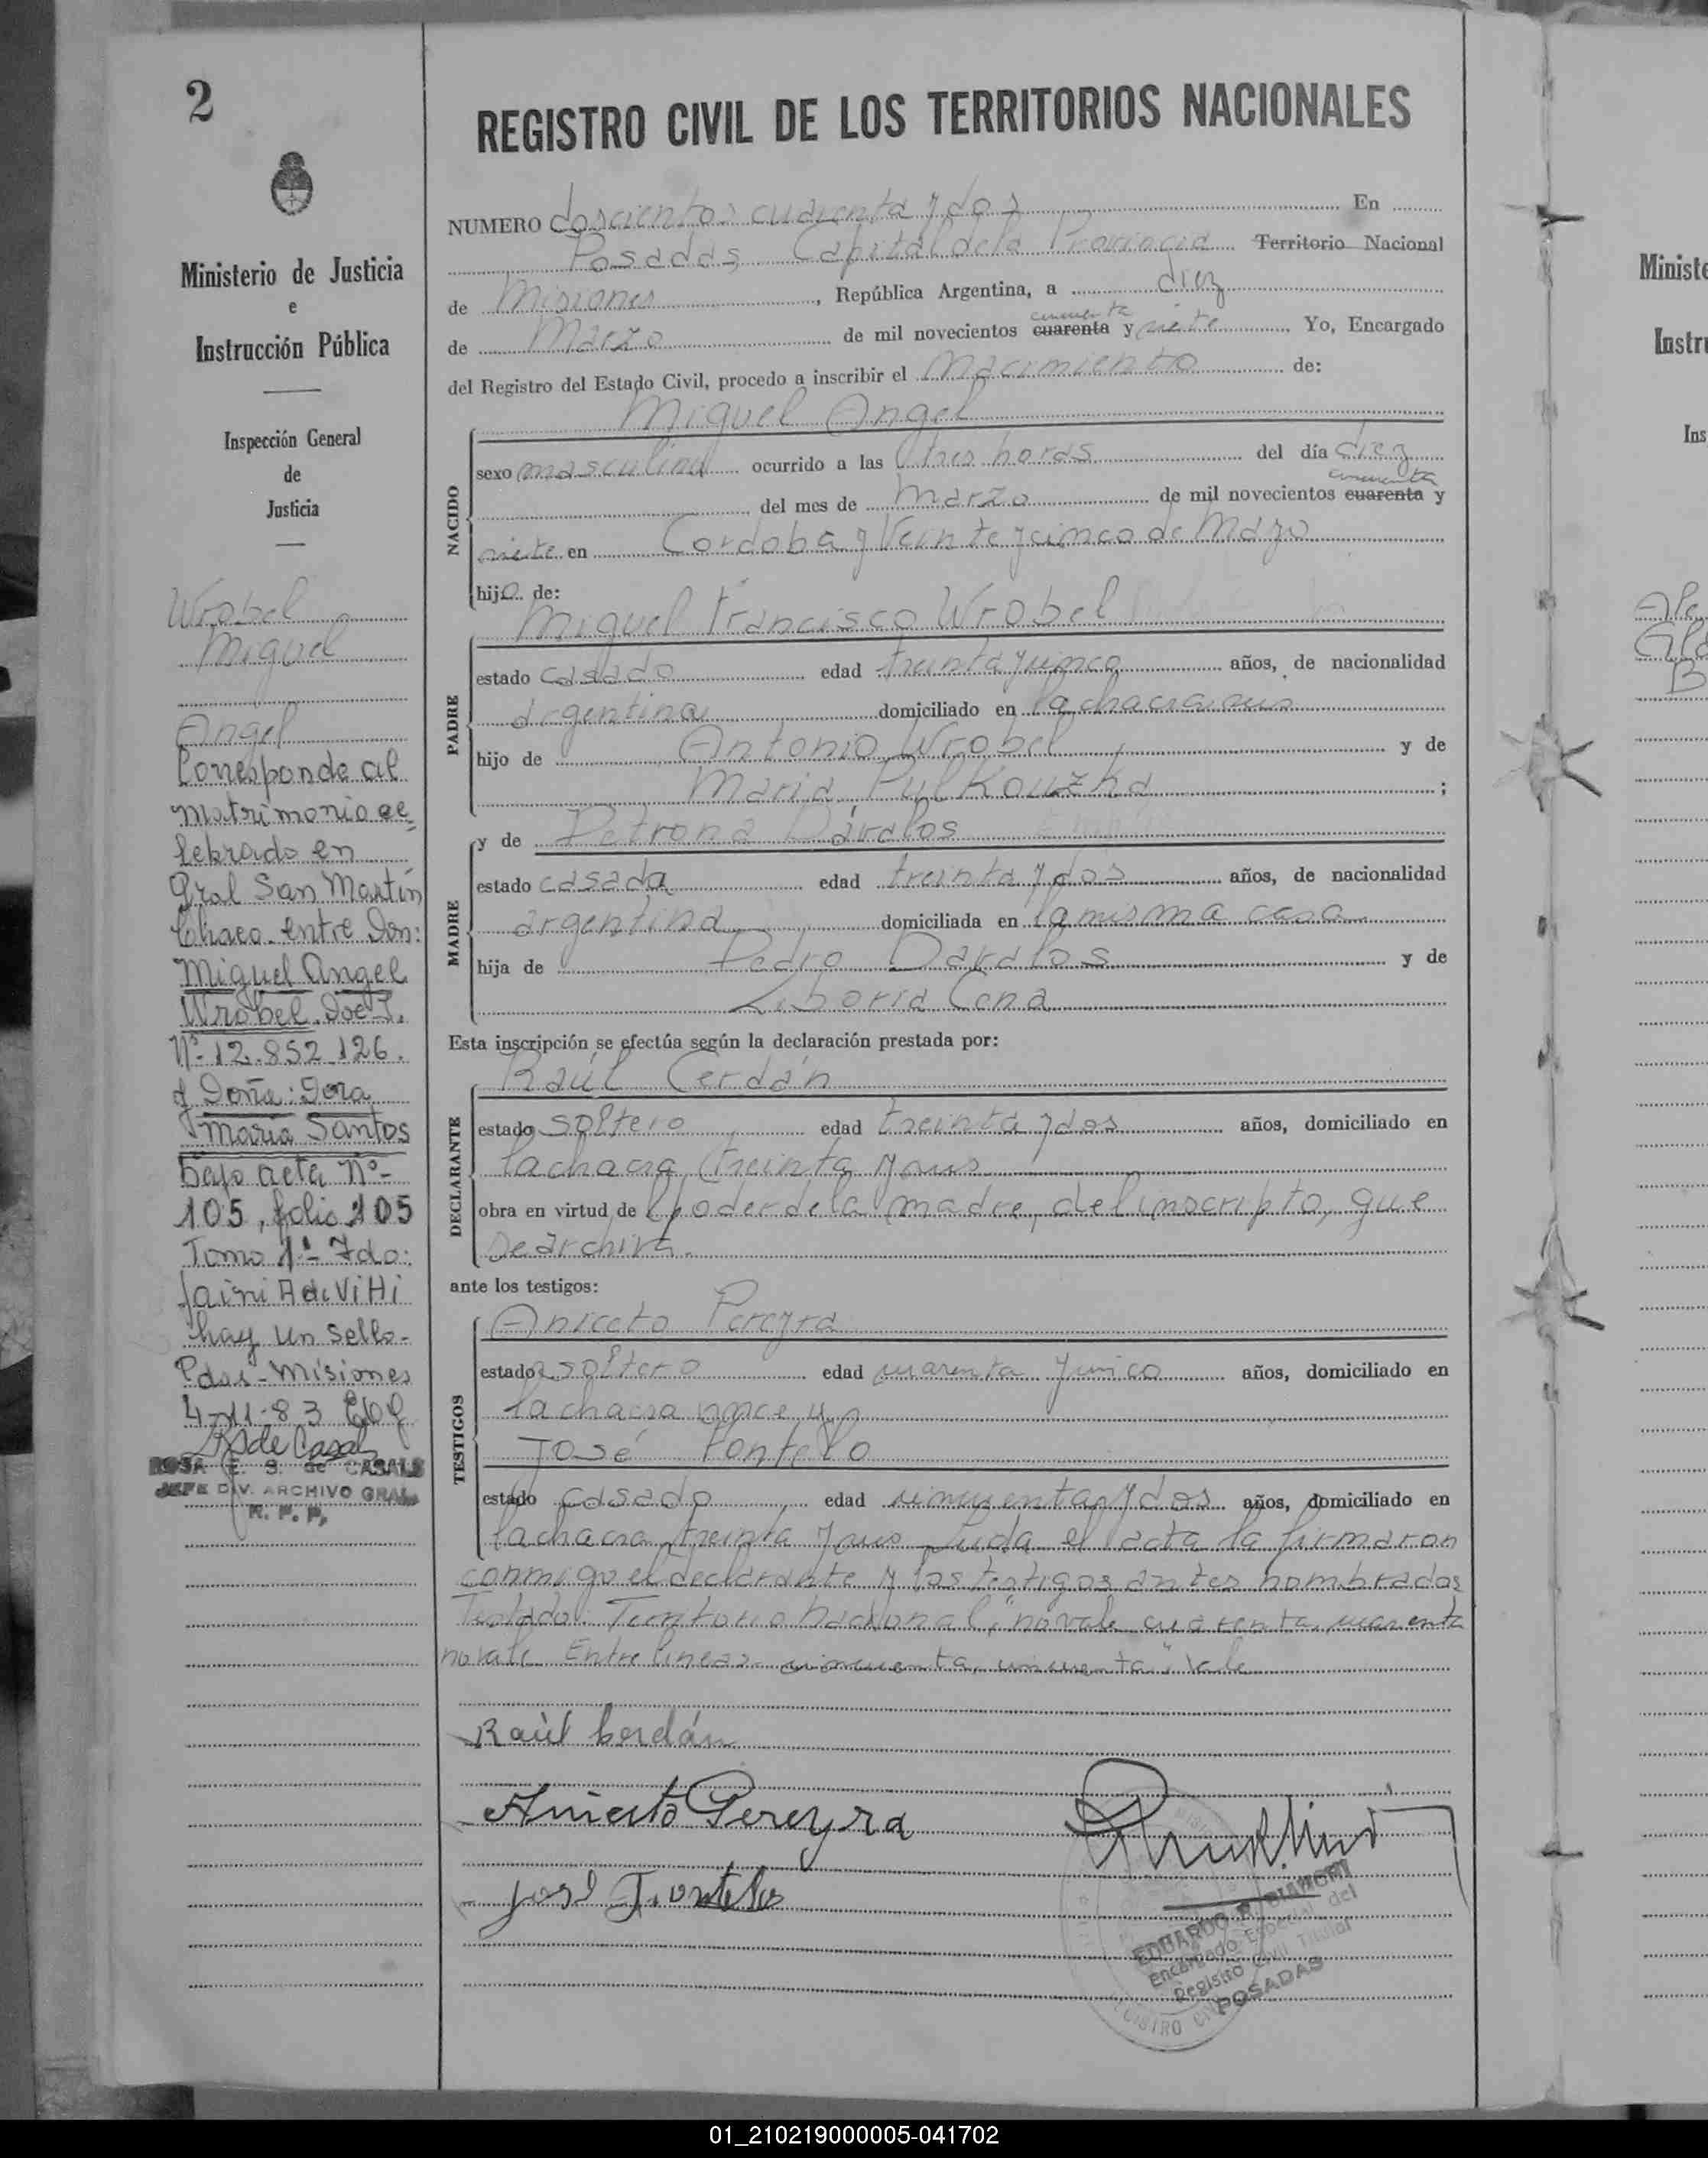 2
Ministerio de Justicia
e
Instrucción Pública
Inspección General
de
Justicia
Wrobel
Miguel
Angel
Corresponde al
matrimonio ce_
lebrado en
Gral San Martín
Chaco. entre Don:
Miguel Angel
Wrobel. Doc I.
Nº- 12.852.126.
y Doña: Dora
Maria Santos
bajo acta Nº-
105, folio 105
Tomo 1º- Fdo:
hay un sello-
Pdas- Misiones
4-11-83
ROSA E. S. de CASALS
JEFE DIV. ARCHIVO GRAL.
R. P. P.
REGISTRO CIVIL DE LOS TERRITORIOS NACIONALES
NUMERO doscientos cuarenta y dos En
Posadas, Capital de la Provincia Territorio Nacional
de Misiones, República Argentina, a diez
de Marzo de mil novecientos cuarenta cincuenta y siete Yo, Encargado
del Registro del Estado Civil, procedo a inscribir el nacimiento de:
Miguel Angel
NACIDO
sexo masculino ocurrido a las tres horas del día diez
del mes de Marzo de mil novecientos cuarenta cincuenta y
siete en Cordoba y Veinte y cinco de Mayo
hijo de:
Miguel Francisco Wrobel
PADRE
estado casado edad treinta y cinco años, de nacionalidad
argentina domiciliado en la chacra
hijo de Antonio Wrobel y de
Maria Pulkouzka ;
MADRE
y de Petrona Dávalos
estado casada edad treinta y dos años, de nacionalidad
argentina domiciliada en la misma casa
hija de Pedro Davalos y de
Liboria Cena
Esta inscripción se efectúa según la declaración prestada por:
Raúl Cerdán
DECLARANTE
estado soltero edad treinta y dos años, domiciliado en
la chacra treinta y
obra en virtud de poder de la madre, del inscripto, que
se archiva.
ante los testigos:
Aniceto Pereyra
TESTIGOS
estado soltero edad cuarenta y cinco años, domiciliado en
la chacra once y
José Fontelo
estado casado edad cincuenta y dos años, domiciliado en
la chacra treinta y Leida el acta la firmaron
conmigo el declarante y los testigos antes nombrados
Testado: "Territorio Nacional," no vale cuarenta, cuarenta
no vale. Entre lineas: cincuenta, cincuenta" Vale
Raúl Cerdán
Aniceto Pereyra
José Fontelo
EDUARDO R. BIANCHI
Encargado Especial del
Registro Civil Titular
POSADAS
Ministe
Instru
Ins
01_210219000005-041702